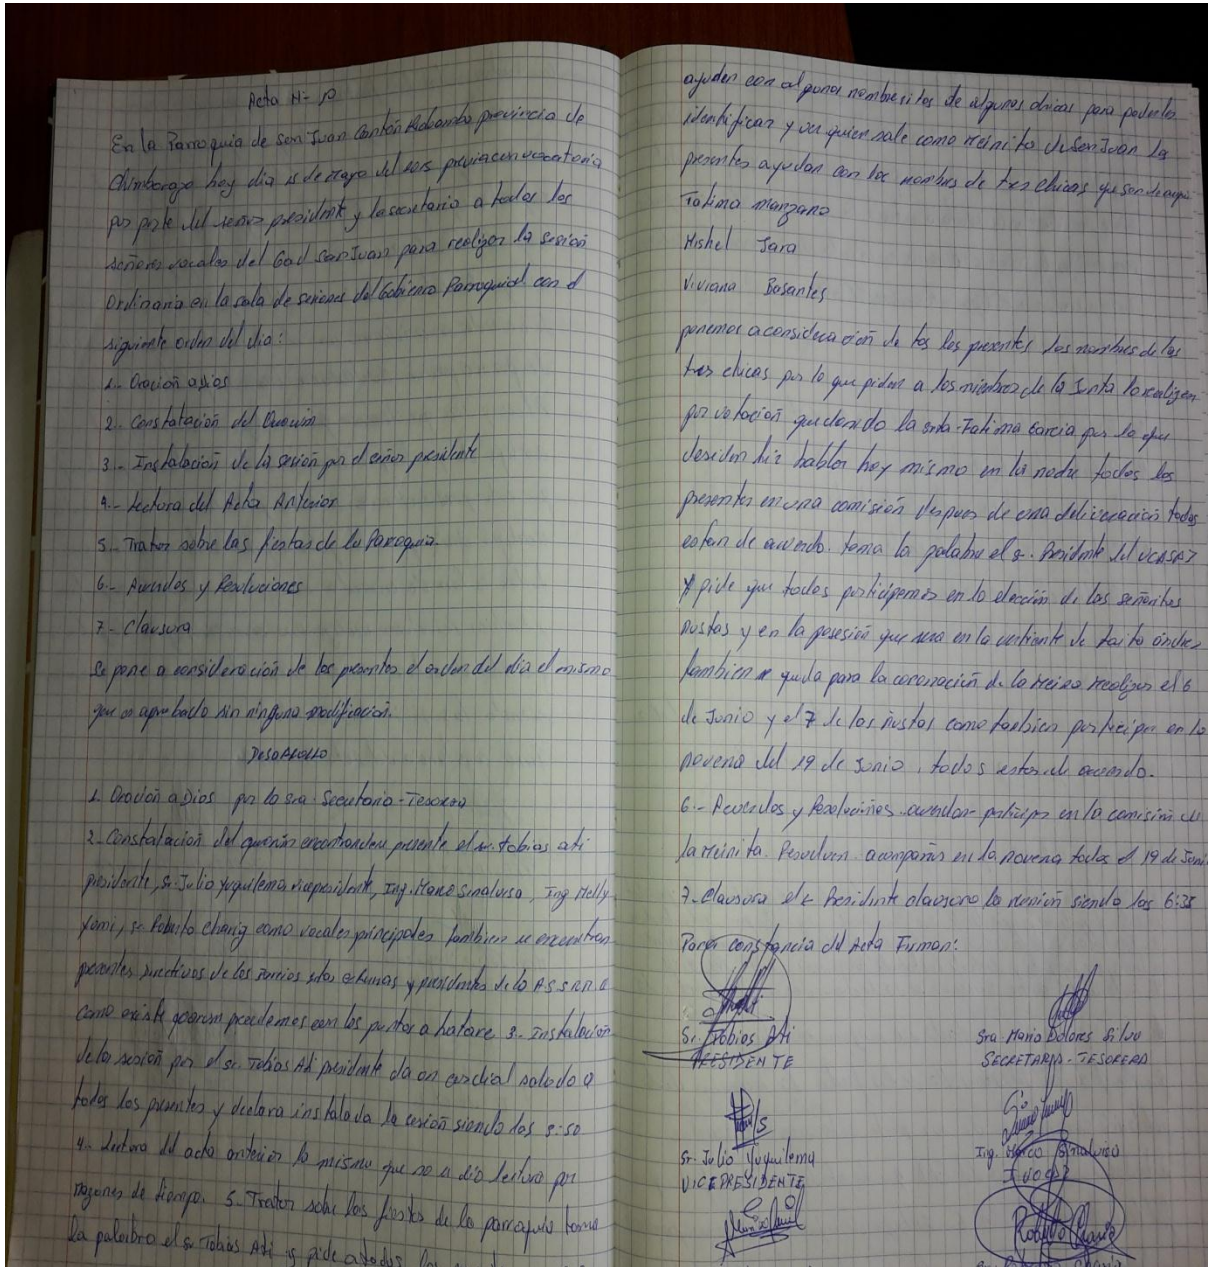 Acta Nº 10
En la Parroquia de San Juan Cantón Riobamba provincia de
Chimborazo hoy dia de mayo del previa convocatoria
por parte del señor presidente y la secretaria a todos los
señores vocales del Gad San Juan para realizar la sesión
Ordinaria en la sala de sesiones del Gobierno Parroquial con el
siguiente orden del dia:
1.- Oración a dios
2.- Constatación del Quorum
3.- Instalación de la sesión por el señor presidente
4.- Lectura del Acta Anterior
5.- Tratar sobre las fiestas de la Parroquia.
6.- Acuerdos y Resoluciones
7.- Clausura
Se pone a consideración de los presentes el orden del dia el mismo
que es aprobado sin ninguna modificación.
Desarrollo
1. Oración a Dios por la sra. Secretaria - Tesorera
2.- Constatación del quorum encontrandose presente el sr. tobias ati
presidente, sr. Julio Yuquilema vicepresidente, Ing. Marco Sinaluisa, Ing Nelly
Yumi, sr. Roberto charig como vocales principales tambien se encuentran
presentes directivos de los barrios y presidentes de la
como existe quorum procedemos con los puntos a tratarse 3.- Instalación
de la sesión por el sr. Tobias Ati presidente da un cordial saludo a
todos los presentes y declara instalada la sesión siendo las 5:50
4.- Lectura del acta anterior la mismo que no se dio lectura por
razones de tiempo. 5.- Tratar sobre las fiestas de la parroquia toma
la palabra el sr Tobias Ati y pide a todos los
ayuden con algunos nombresitos de algunas chicas para poderlo
identificar y ver quien sale como reinita de San Juan los
presentes ayudan con los nombres de tres chicas que son de aqui
Fatima Manzano
Mishel Jara
Viviana Basantes
ponemos a consideración de tos los presentes los nombres de las
tres chicas por lo que piden a los miembros de la Junta lo realizen
por votación quedando la srta. Fatima Garcia por lo que
desiden hir hablar hoy mismo en la noche todos los
presentes en una comisión despues de una deliveración todos
estan de acuerdo. toma la palabra el sr. Presidente del UCASAJ
y pide que todos participemos en la elección de las señoritas
ñustas y en la posesión que sera en la vertiente de taita
tambien queda para la coronación de la reina realizar el 6
de Junio y el 7 de las ñustas como tambien participar en la
novena del 19 de Junio, todos estan de acuerdo.
6.- Acuerdos y Resoluciones acuerdan participar en la comisión de
la reinita. Resuelven acompañar en la novena todos el 19 de Juni
7.- Clausura el sr Presidente clausura la reunión siendo las 6:35
Para constancia del Acta Firman:
Sr. Tobias Ati
PRESIDENTE
Sra Maria Dolores Silva
SECRETARIA - TESORERA
Sr. Julio Yuquilema
VICEPRESIDENTE
Ing. Marco Sinaluisa
I VOCAL